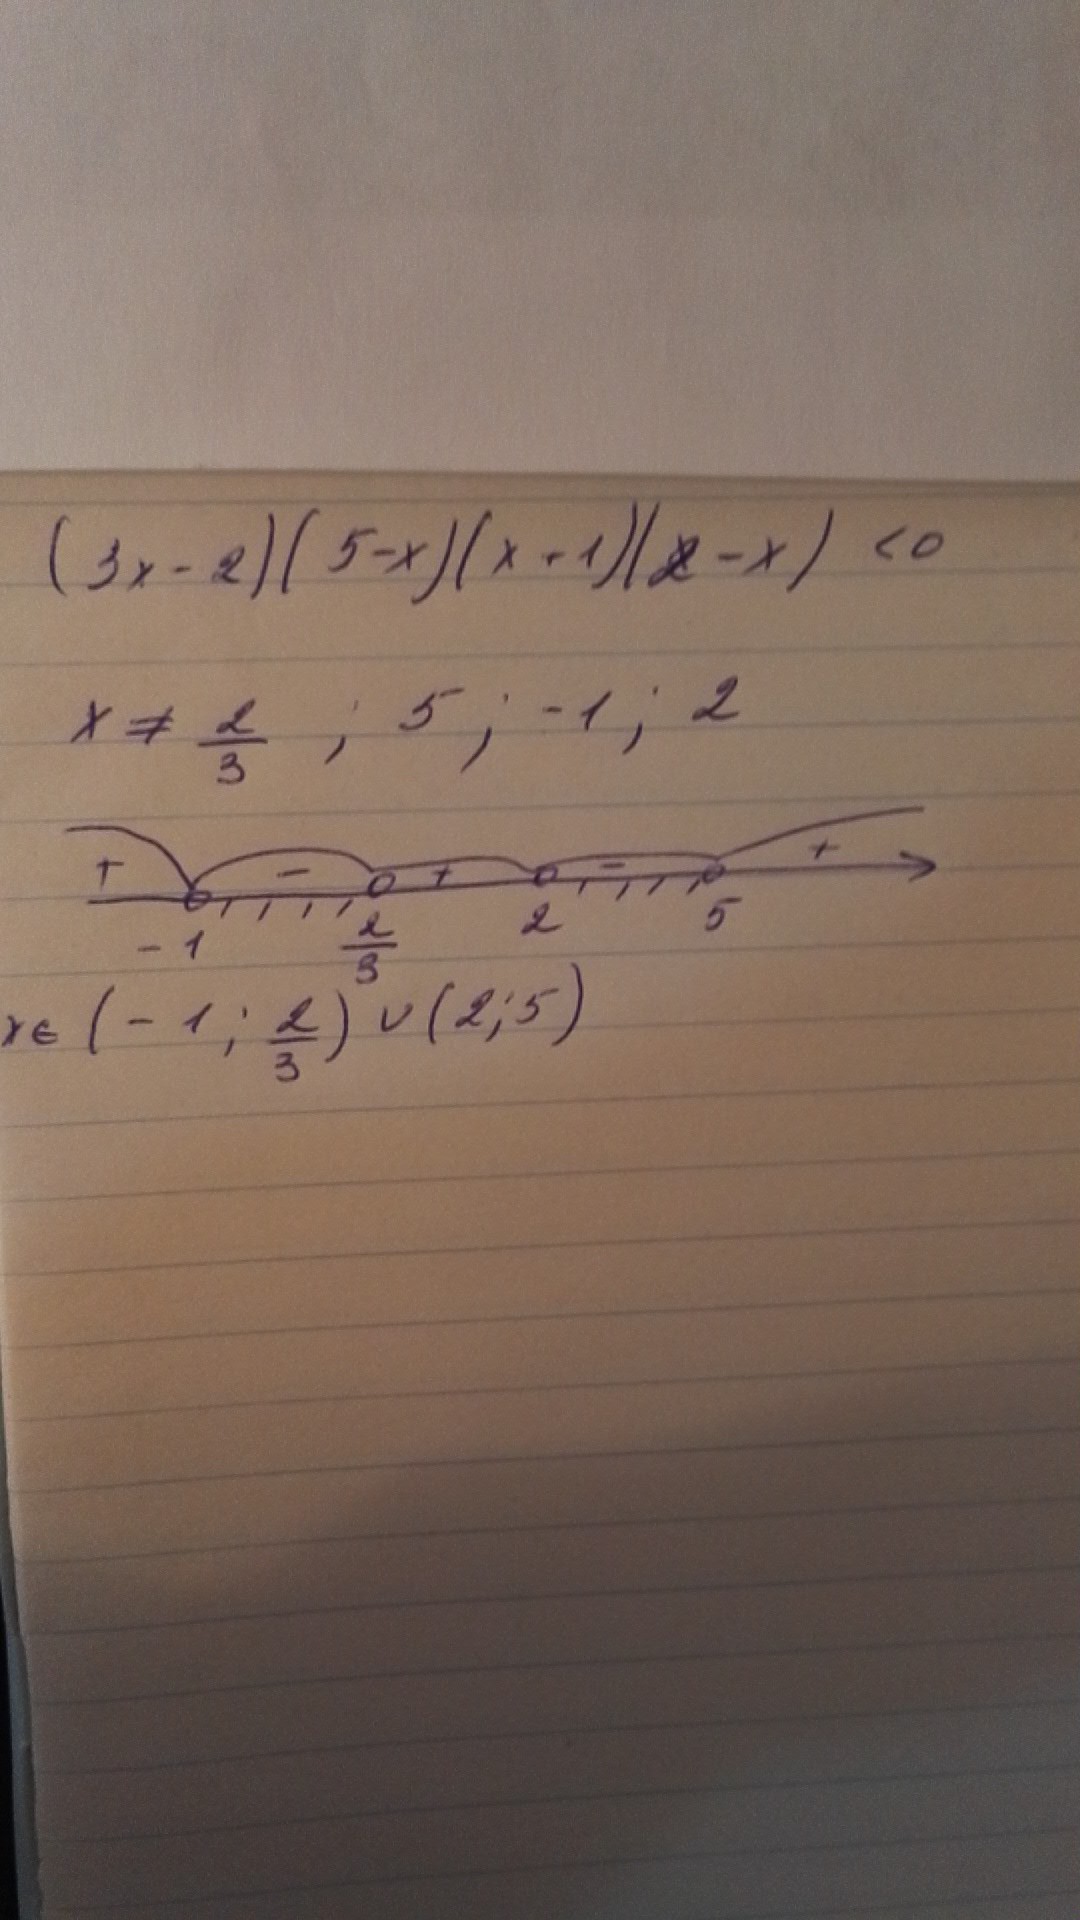 (3x-2)(5-x)(x+1)(2-x) <0
x ≠ 2/3 ; 5 ; -1 ; 2
+ - + - +
-1 2/3 2 5
x∈ (-1; 2/3) ∪ (2;5)